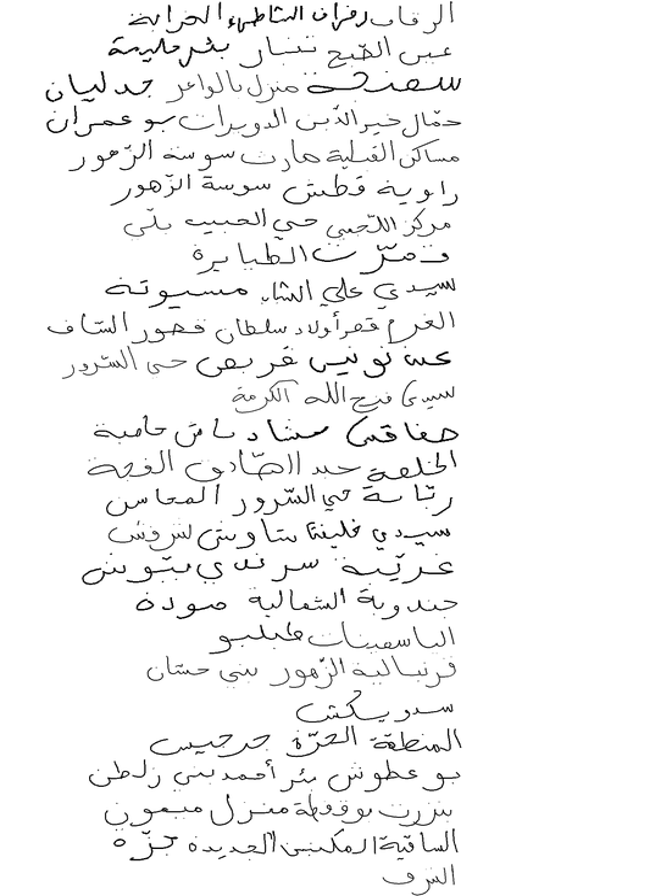 الرقاب رفراف الشاطىء الخرابة
عين الضبع تنسار بشر مليمة
سفنجة منزل بالواعر جدليان
حمّال خير الدّين الدويرات بو عمران
مساكن القبلية مارث سوسة الزّهور
راوية قطش سوسة الزّهور
مركز اللّجمي حي الحبيب بلّي
الطبايرة
سيدي علي الشاب مسيوتة
قصر أولاد سلطان قصور السّاف
عين تونس قربص حي السّرور
سيدي فتح الله الكرمة
صفاقس
الخلفة عبد الصّادق
رتّابة حي السّرور المحاسن
سيدي خليفة
غريّبة
جندوبة الشمالية صودة
الياسمينات طبلبو
قرنبالية الزّهور بني حسّان
سدويكش
المنطقة الحرّة جرجيس
بو عطوش بئر أحمد بني زلطن
بنزرت منزل ميمون
الساقية المكنين الجديدة جزّة
الشرف